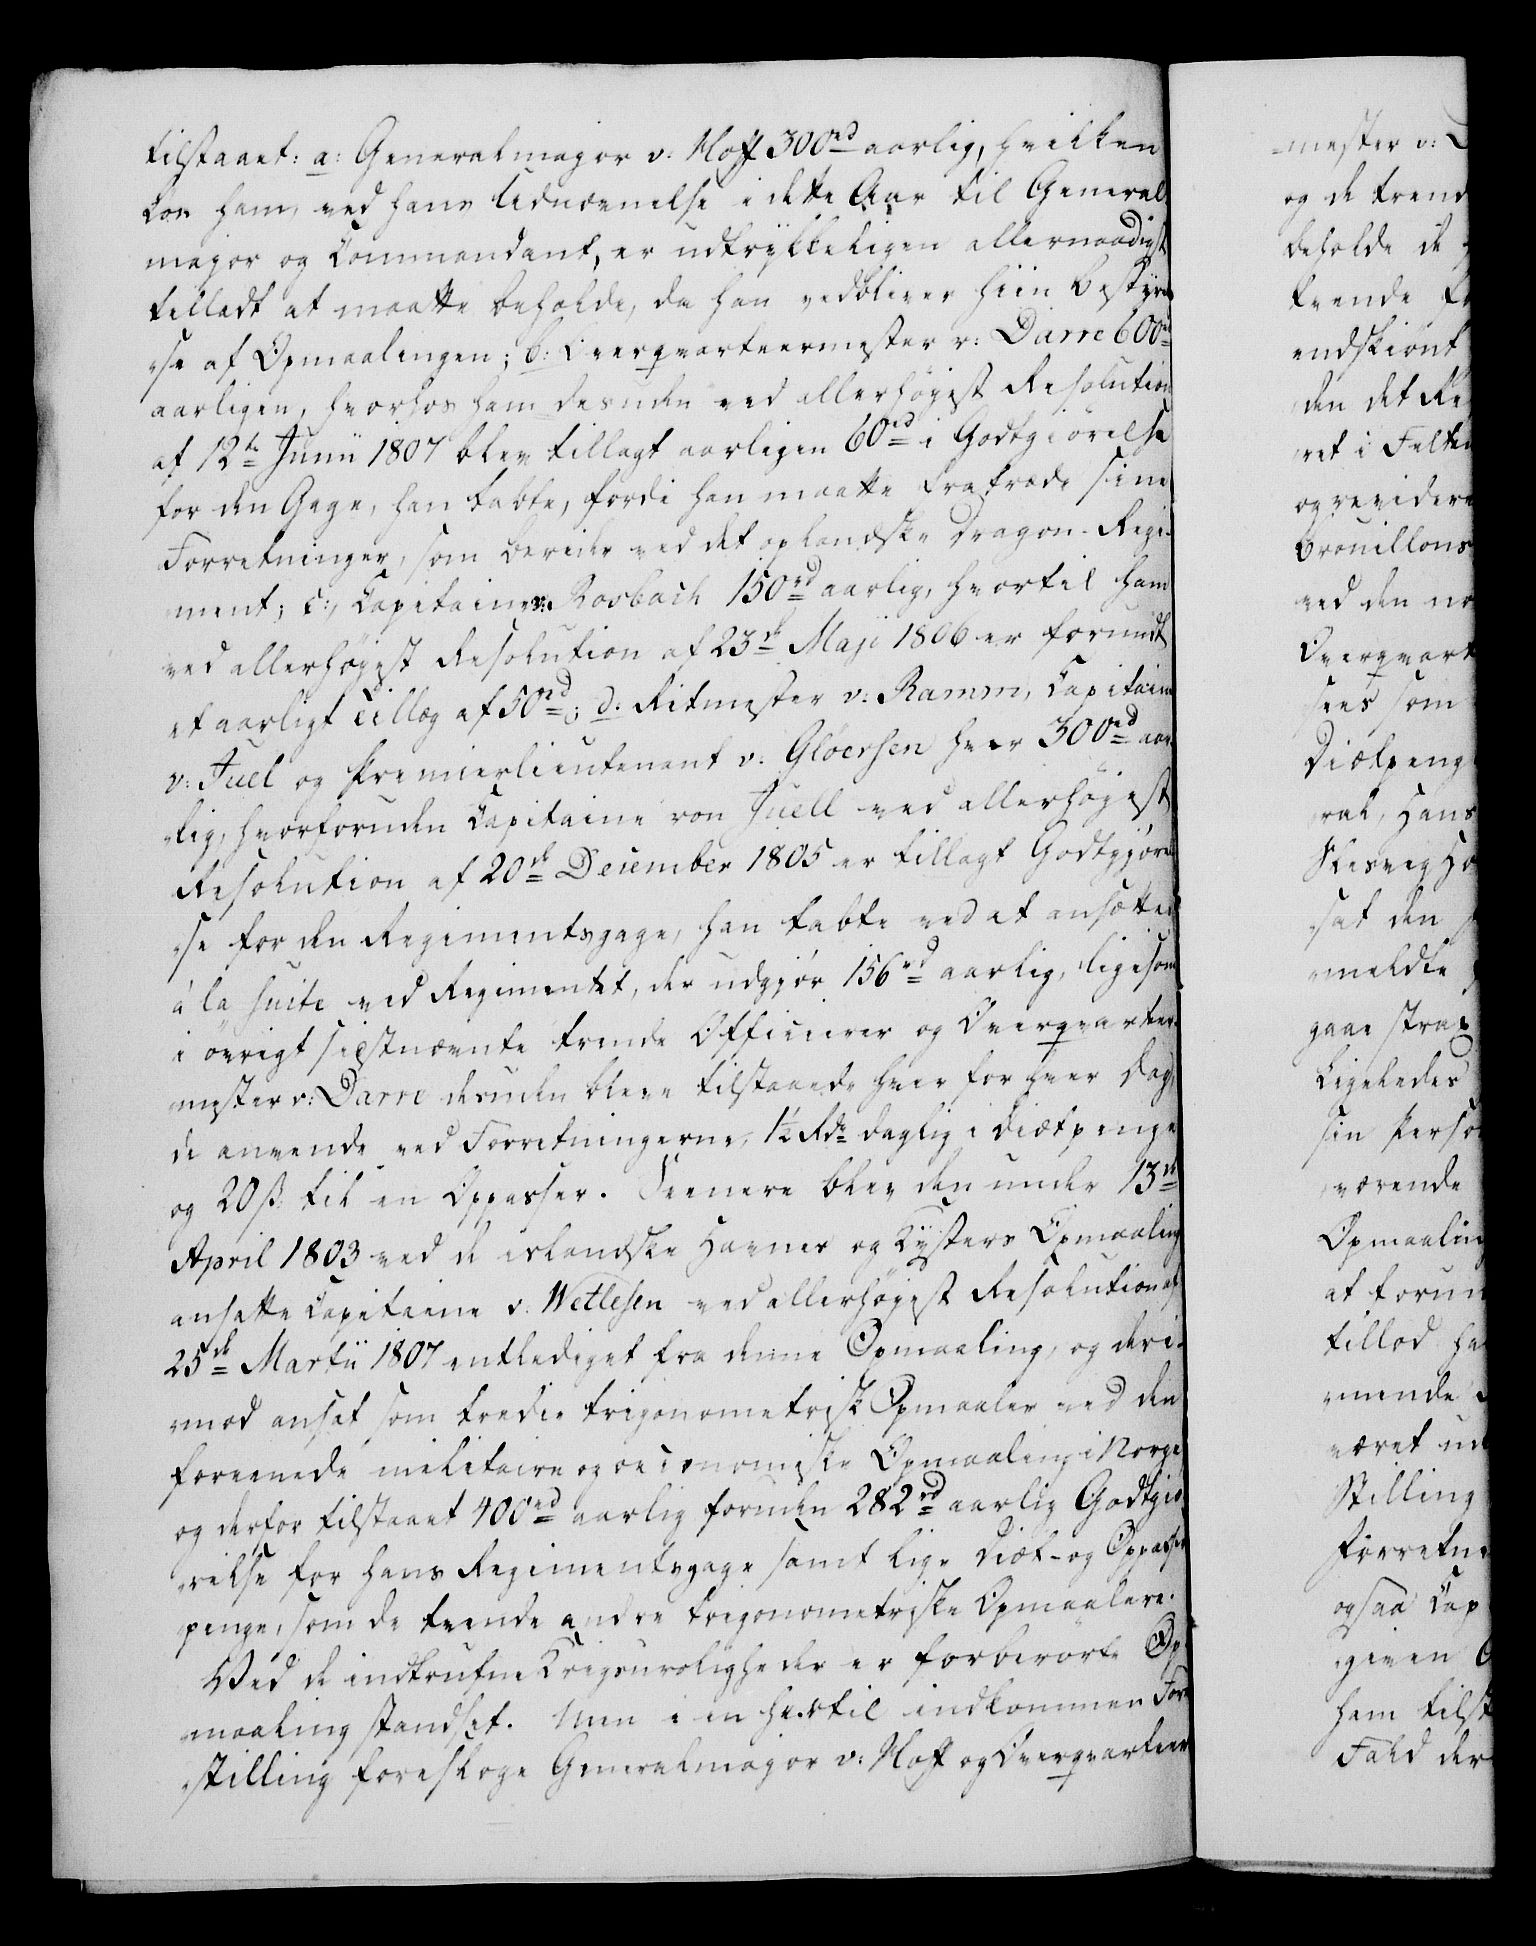 tilstaaet: a: Generalmajor v: Hoff 300rd aarlig, hvilken
Løn ham, ved hans Udnævnelse i dette Aar til General-
major og Commandant, er udtrykkeligen allernaadigst
tilladt at maatte beholde, da han vedbliver hiin Bestyrel-
se af Opmaalingen; b: Overqvarteermester v: Darre 600rd
aarligen, hvorhos ham desuden ved allerhøiest Resolution
af 12te Junii 1807 blev tillagt aarligen 60rd i Godtgiörelse
for den Gage, han tabte, fordi han maatte fratræde sine
Forretninger, som Berider ved det oplandske Dragon-Regi-
ment; c:, Capitain v: Rosbach 150rd aarlig, hvortil ham
ved allerhøiest Resolution af 23de Maji 1806 er forundt
et aarligt Tillæg af 50rd; d: Ritmester v: Ramm, Capitain
v: Juel og Premierlieutenant v: Glöersen hver 300rd aar-
lig, hvorforuden Capitaine von Juell ved allerhøiest
Resolution af 20de December 1805 er tillagt Godtgjørel-
se for den Regimentsgage, han tabte ved at ansættes
à la suite ved Regimentet, der udgjør 156rd aarlig, ligesom
i øvrigt sidstnævnte trende Officierer og Overqvarteer-
mester v: Darre desuden bleve tilstaaede hver for hver Dag,
de anvende ved Forretningerne, 1½ Rdr daglig i Diætpenge
og 20 ß til en Oppasser. Seenere blev den under 13de
April 1803 ved de islandske Havnes og Kysters Opmaaling
ansatte Capitaine v: Wetlesen ved allerhøiest Resolution af
25de Martii 1807 entlediget fra denne Opmaaling, og deri-
mod ansat som tredie trigonometrisk Opmaaler ved den
foreenede militaire og oeconomiske Opmaaling i Norge,
og derfor tilstaaet 400rd aarlig foruden 282rd aarlig Godtgiö-
relse for hans Regimentsgage samt lige Diæt- og Oppasser-
penge, som de tvende andre trigonometriske Opmaalere.
Ved de indtrufne Krigsuroligheder er forberørte Op-
maaling standset. Men i en hertil indkommen Fore-
stilling foresloge Generalmajor v: Hoff og Overqvarteer-
mester v:
og de trend
beholde de
tvende
endskiönt
den det Re
ret i Felte
og revidere
Brouillons
ved den no
Overqvart
sees som
Diætpeng
ral, Hans
Slesvig Ho
sat den
meldte
gaae strax
Ligeledes
sin Perso
værende
Opmaaling
at forun
tillod ha
mende
været ud
Stilling
Forretn
ogsaa Cap
given
ham tilst
Fald der